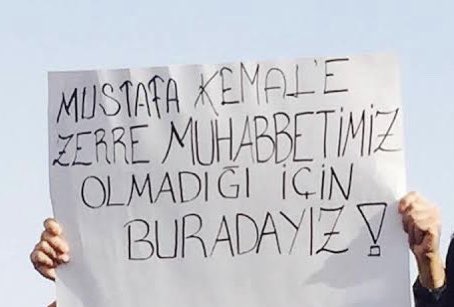 MUSTAFA KEMAL'E
ZERRE MUHABBETİMİZ
OLMADIĞI İÇİN
BURADAYIZ!